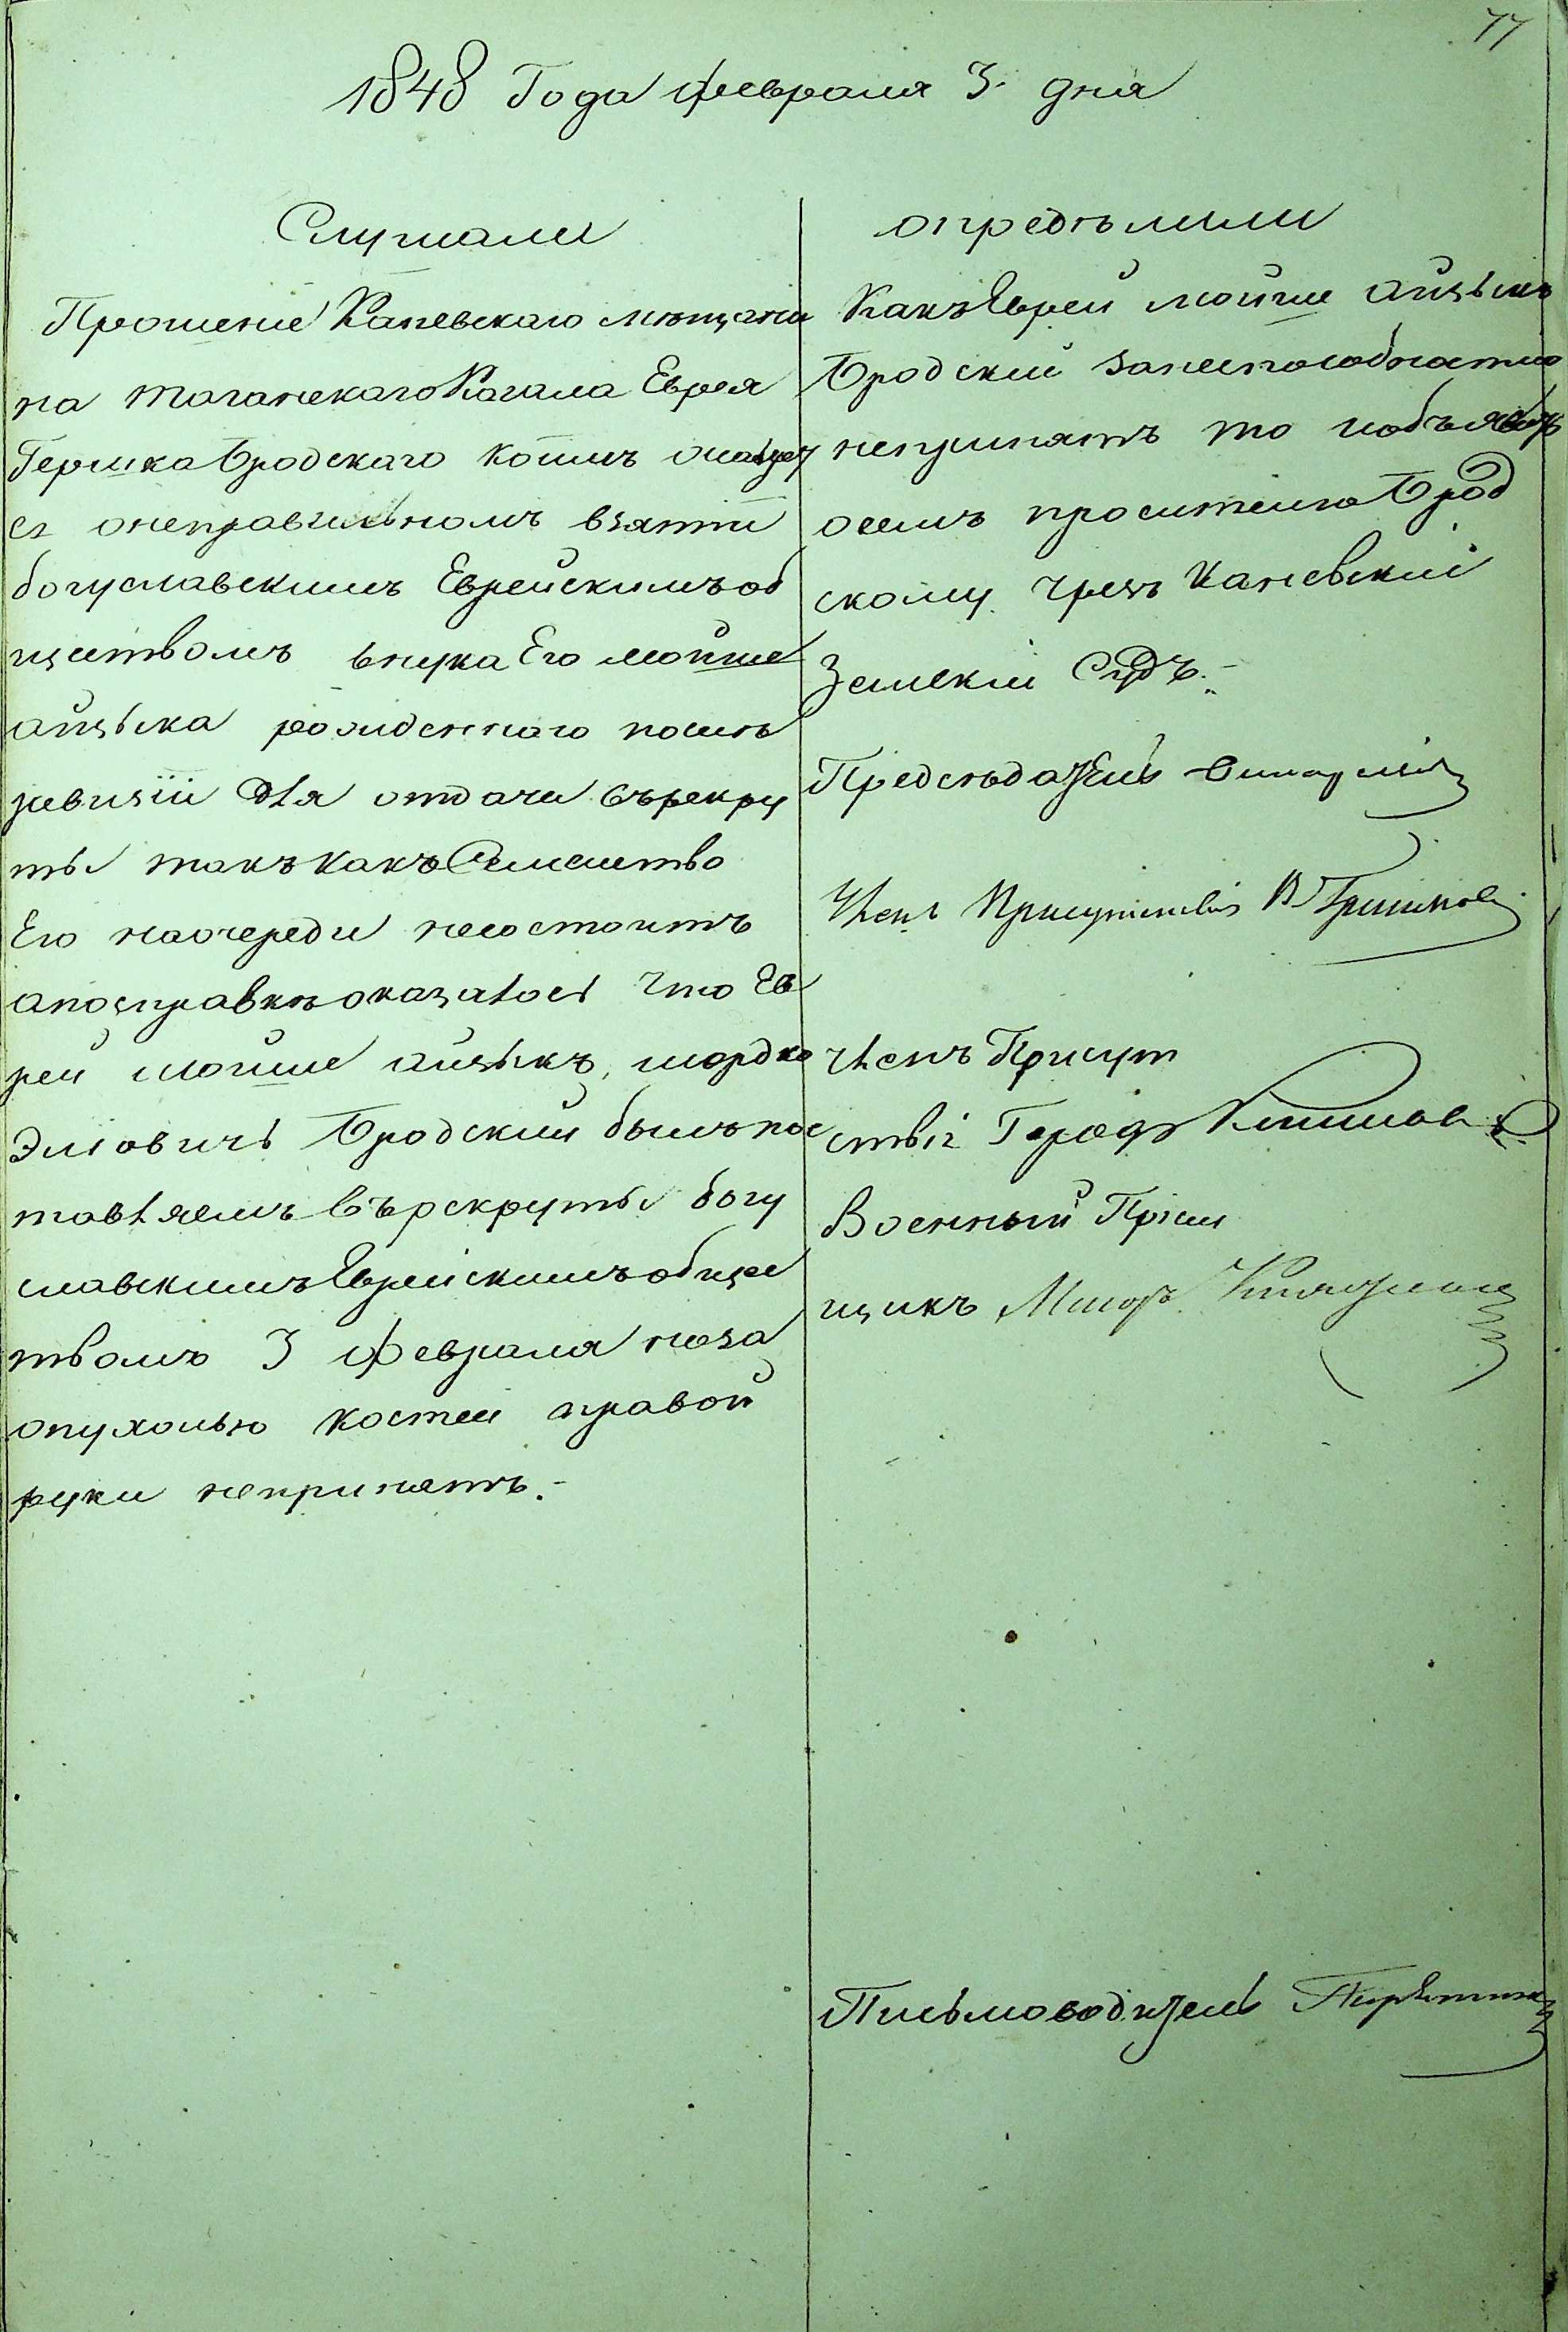 77
1848 Года февраля 3. дня
Слушали
Прошение Каневскаго мѣщани
на Таганскаго Кагала Еврея
Гершка Бродскаго коимъ
ся онеправильномъ взятти
богуславскимъ Еврейскимъ об
ществомъ внука Его Мойше
Айзыка рожденного послѣ
ревизіи для отдачи въ рекру
ты такъ какъ Семейство
Его наочереди несостоитъ
а посправкѣ оказалось что Ев
рей Мойше Айзыкъ, Мордко
Эліовичъ Бродский былъ пос
тавляемъ въ рекруты богу
славскимъ Еврейскимъ общес
твомъ 3 февраля ноза
опухолью костей правой
руки непринятъ.-
опредѣлили
Какъ Еврей Мойше Айзыкъ
Бродский занеспособностью
непринятъ то иобъявить
осемъ просителю Брод
скому чрезъ Каневский
Земский Судъ.-
Председатель
Членъ Присутствія В
Членъ Присут
ствія
Военный Пріем
щикъ Маиоръ
Письмоводитель